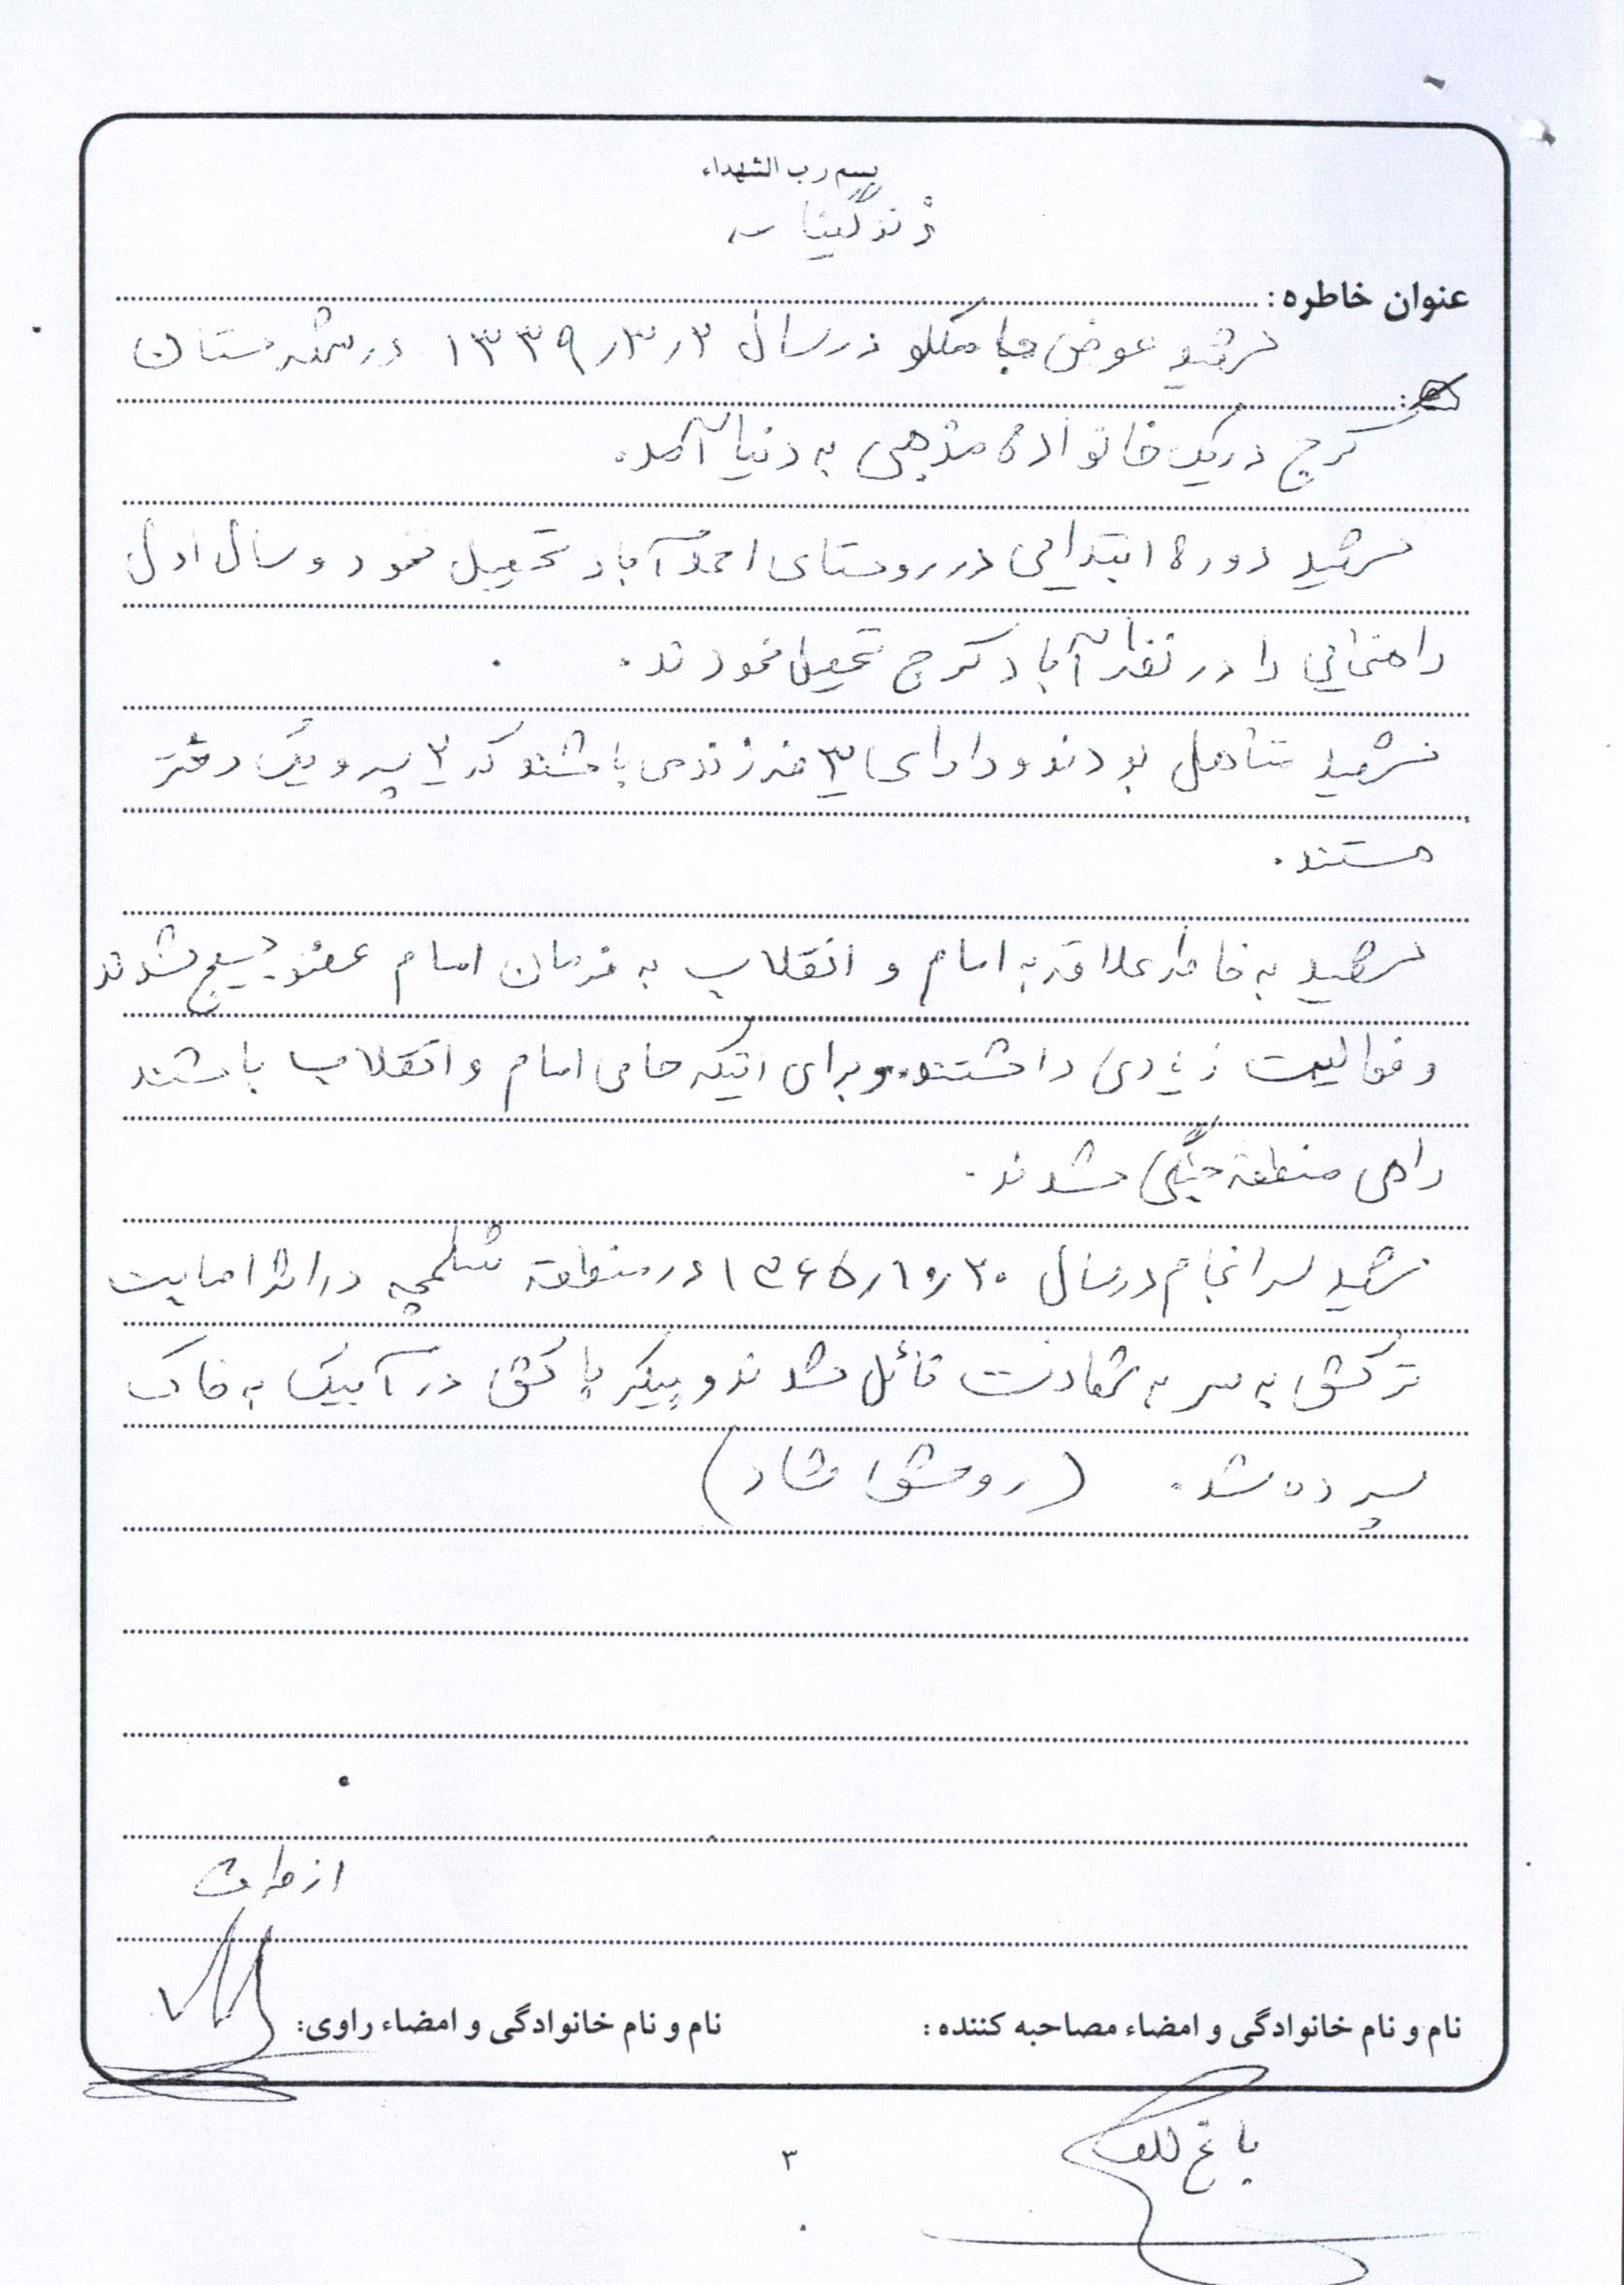 بسم رب الشهداء
زندگینامه
عنوان خاطره:
شهید عوض جاملو در سال ۱۳۳۹/۳/۲ در شهرستان
کرج در یک خانوادهٔ مذهبی به دنیا آمد.
شهید دورهٔ ابتدایی در روستای احمدآباد تحصیل نمود و سال اول
راهنمایی را در نظرآباد کرج تحصیل نمودند.
شهید متأهل بودند و دارای ۳ فرزند می باشند که ۲ پسر و یک دختر
هستند.
شهید به خاطر علاقه به امام و انقلاب به فرمان امام عضو بسیج شدند
و فعالیت زیادی داشتند. و برای اینکه حامی امام و انقلاب باشند
راهی منطقه جنگی شدند.
شهید سرانجام در سال ۱۳۶۵/۱۰/۲۰ در منطقه شلمچه در اثر اصابت
ترکش به سر به شهادت نائل شدند و پیکر پاکش در آبیک به خاک
سپرده شد. (روحش شاد)
از طرف
نام و نام خانوادگی و امضاء مصاحبه کننده: نام و نام خانوادگی و امضاء راوی:
۳